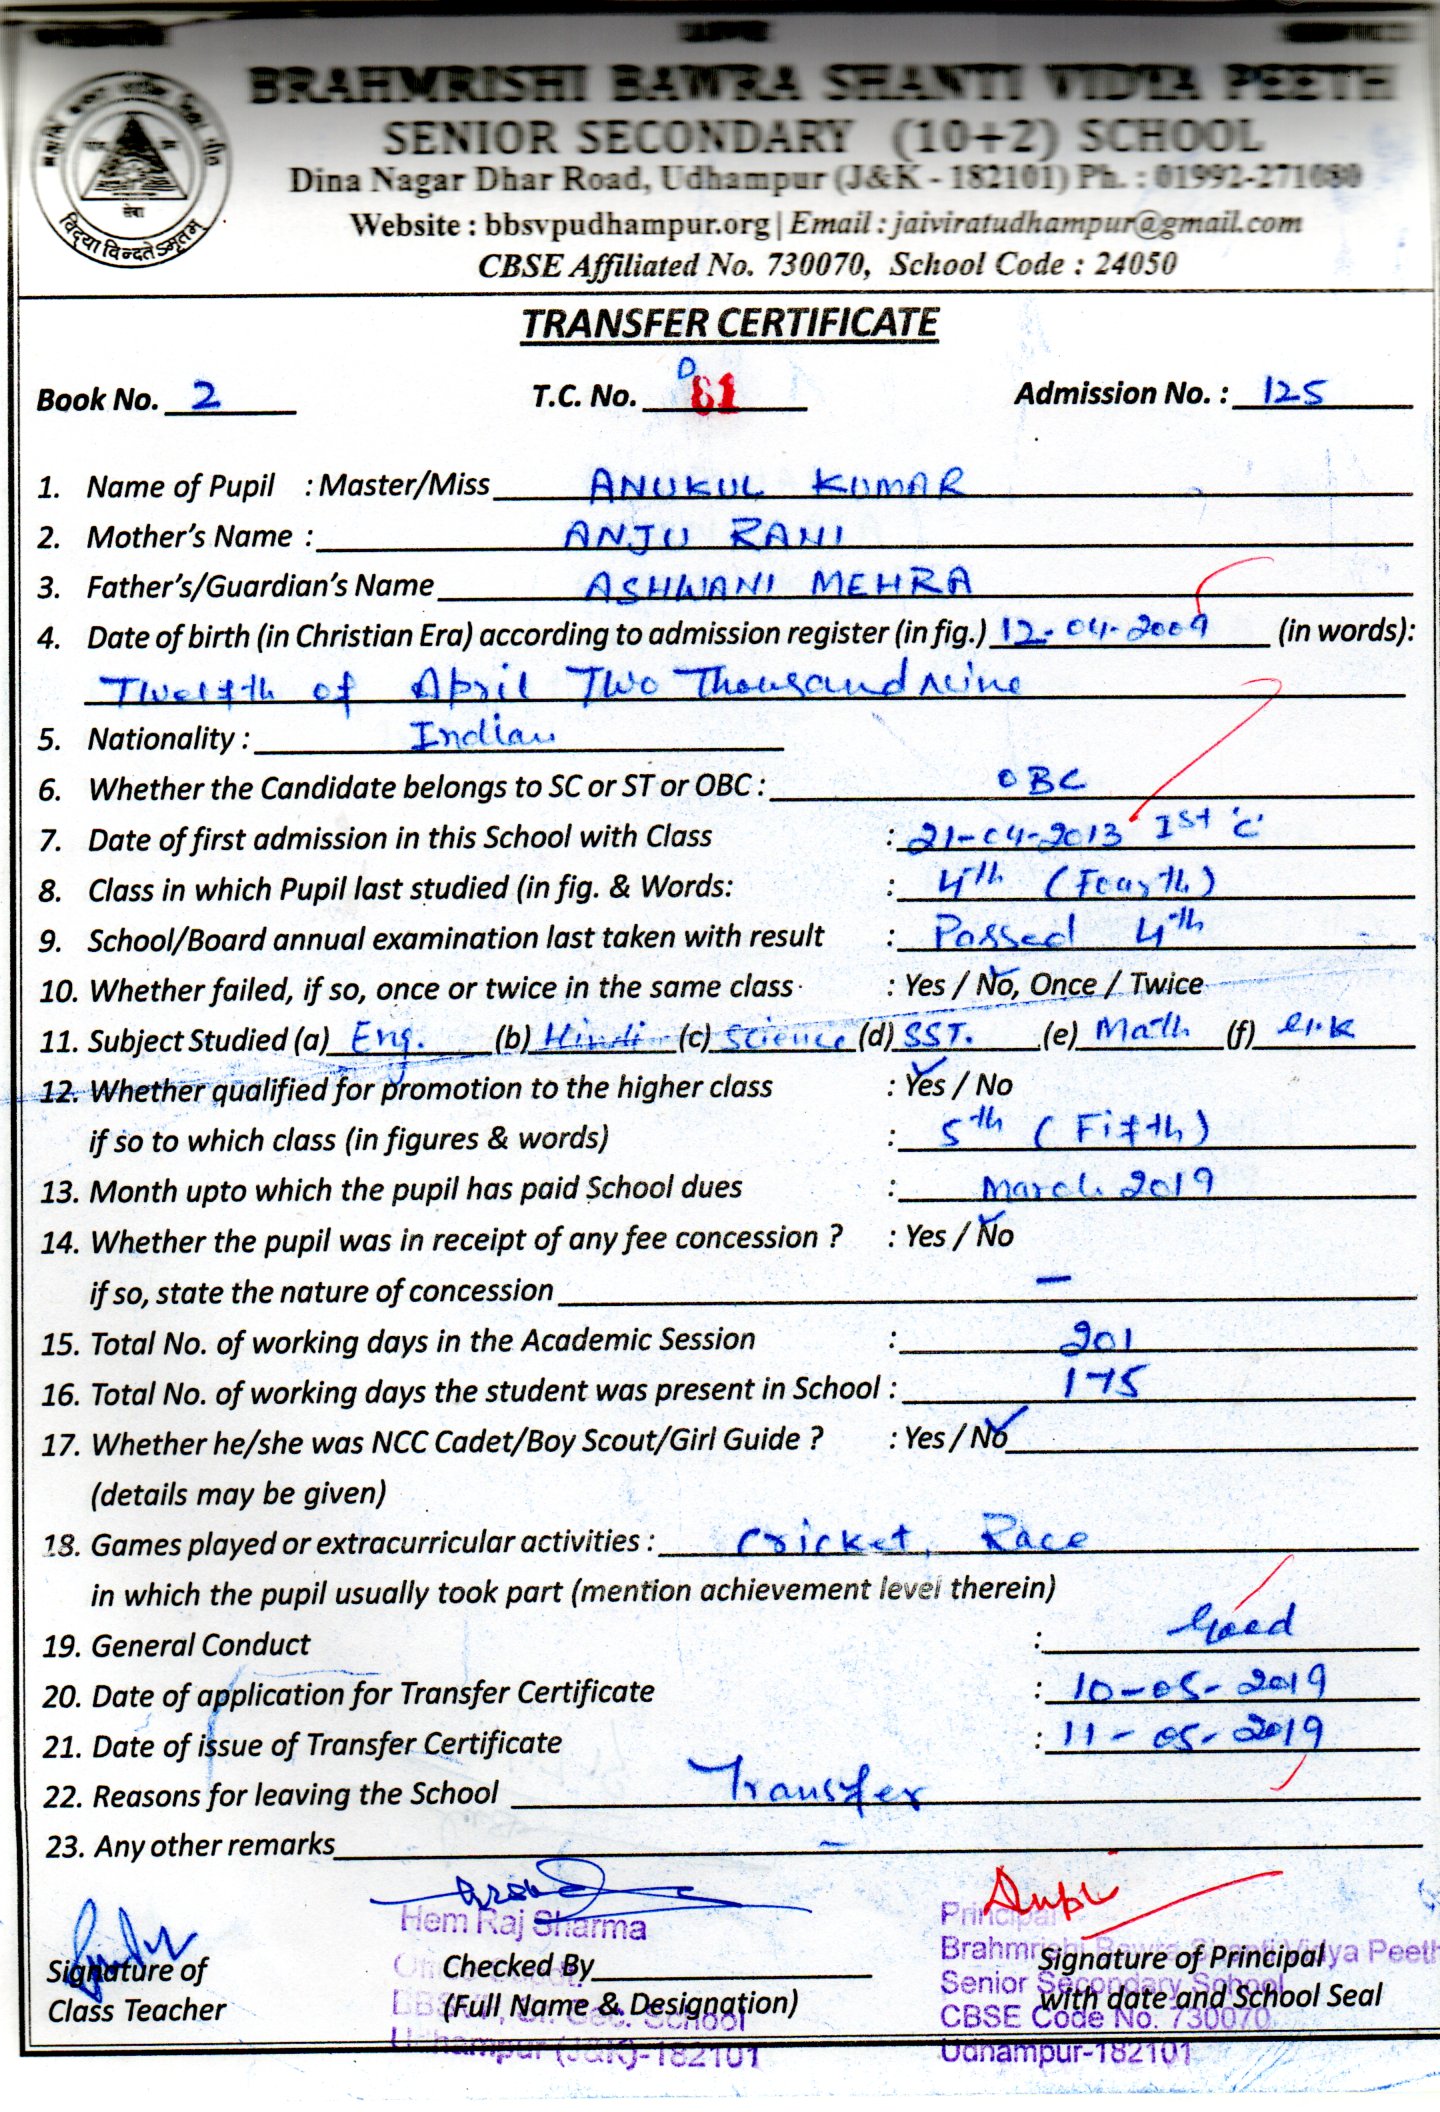 BRAHMRISHI BAWRA SHANTI VIDYA PEETH
SENIOR SECONDARY (10+2) SCHOOL
Dina Nagar Dhar Road, Udhampur (J&K - 182101) Ph. : 01992-271080
Website : bbsvpudhampur.org | Email : jaiviratudhampur@gmail.com
CBSE Affiliated No. 730070, School Code : 24050
सेवा
विद्या विन्दतेऽमृतम्
TRANSFER CERTIFICATE
Book No. 2 T.C. No. 81 Admission No. : 125
1. Name of Pupil : Master/Miss ANUKUL KUMAR
2. Mother's Name : ANJU RANI
3. Father's/Guardian's Name ASHWANI MEHRA
4. Date of birth (in Christian Era) according to admission register (in fig.) 12-04-2009 (in words):
Twelfth of April Two Thousand Nine
5. Nationality : Indian
6. Whether the Candidate belongs to SC or ST or OBC : OBC
7. Date of first admission in this School with Class : 21-04-2013 Ist 'C'
8. Class in which Pupil last studied (in fig. & Words: : 4th (Fourth)
9. School/Board annual examination last taken with result : Passed 4th
10. Whether failed, if so, once or twice in the same class : Yes / No, Once / Twice
11. Subject Studied (a) Eng. (b) Hindi (c) Science (d) SST. (e) Math (f) G.K
12. Whether qualified for promotion to the higher class : Yes / No
if so to which class (in figures & words) : 5th (Fifth)
13. Month upto which the pupil has paid School dues : March 2019
14. Whether the pupil was in receipt of any fee concession ? : Yes / No
if so, state the nature of concession —
15. Total No. of working days in the Academic Session : 201
16. Total No. of working days the student was present in School : 175
17. Whether he/she was NCC Cadet/Boy Scout/Girl Guide ? : Yes / No
(details may be given)
18. Games played or extracurricular activities : Cricket, Race
in which the pupil usually took part (mention achievement level therein)
19. General Conduct : Good
20. Date of application for Transfer Certificate : 10-05-2019
21. Date of issue of Transfer Certificate : 11-05-2019
22. Reasons for leaving the School Transfer
23. Any other remarks —
Hem Raj Sharma
Principal
Brahmrishi Bawra Shanti Vidya Peeth
Senior Secondary School
CBSE Code No. 730070
Udhampur-182101
Sr. Sec. School
Udhampur (J&K)-182101
Signature of
Class Teacher
Checked By
(Full Name & Designation)
Signature of Principal
with date and School Seal